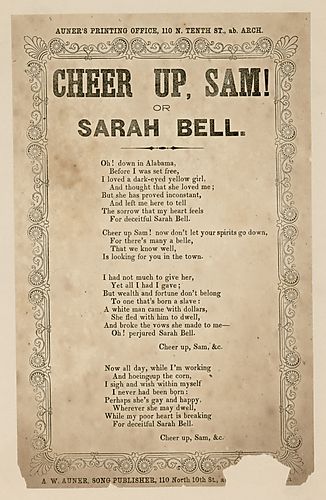 AUNER'S PRINTING OFFICE, 110 N. TENTH ST., ab. ARCH.
CHEER UP, SAM!
OR
SARAH BELL.
Oh! down in Alabama,
Before I was set free,
I loved a dark-eyed yellow girl,
And thought that she loved me;
But she has proved inconstant,
And left me here to tell
The sorrow that my heart feels
For deceitful Sarah Bell.
Cheer up Sam! now don't let your spirits go down,
For there's many a belle,
That we know well,
Is looking for you in the town.
I had not much to give her,
Yet all I had I gave;
But wealth and fortune don't belong
To one that's born a slave:
A white man came with dollars,
She fled with him to dwell,
And broke the vows she made to me—
Oh! perjured Sarah Bell.
Cheer up, Sam, &c.
Now all day, while I'm working
And hoeing up the corn,
I sigh and wish within myself
I never had been born:
Perhaps she's gay and happy.
Wherever she may dwell,
While my poor heart is breaking
For deceitful Sarah Bell.
Cheer up, Sam, &c.
A. W. AUNER, SONG PUBLISHER, 110 North 10th St., a